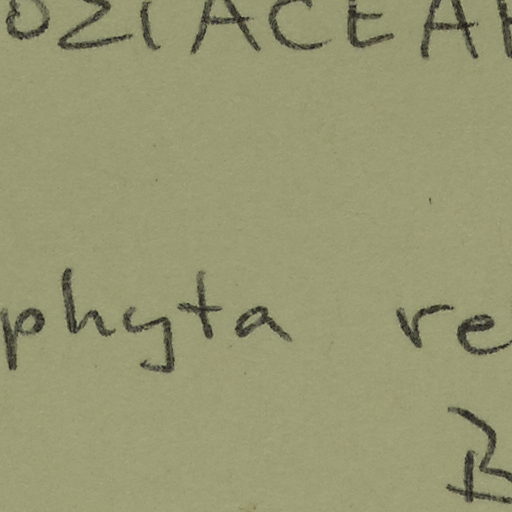 OZIACEAE
phyta re
B